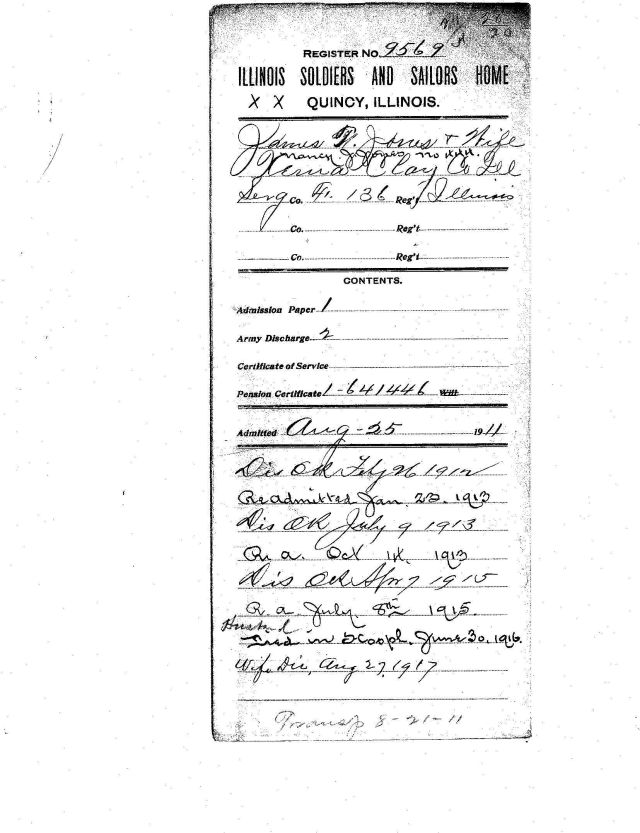 28
20
REGISTER No. 9569
ILLINOIS SOLDIERS AND SAILORS HOME
X X QUINCY, ILLINOIS.
James W. Jones & Wife
Nancy J. Jones no
Xenia Clay Co Ill
Serg Co. F. 136 Reg't Illinois
Co. Reg't
Co. Reg't
CONTENTS.
Admission Paper 1
Army Discharge 2
Certificate of Service
Pension Certificate 1-641446 Will
Admitted Aug-25 1911
Dis OK Feby 26 1912
Readmitted Jan. 23. 1913
Dis OK July 9 1913
R. a. Oct 14. 1913
Dis OK Apr 7 1915
R. a. July. 8th 1915.
Husband
Died in Hospl. June 30. 1916.
Wife Dis, Aug 27, 1917
Transp 8-21-11